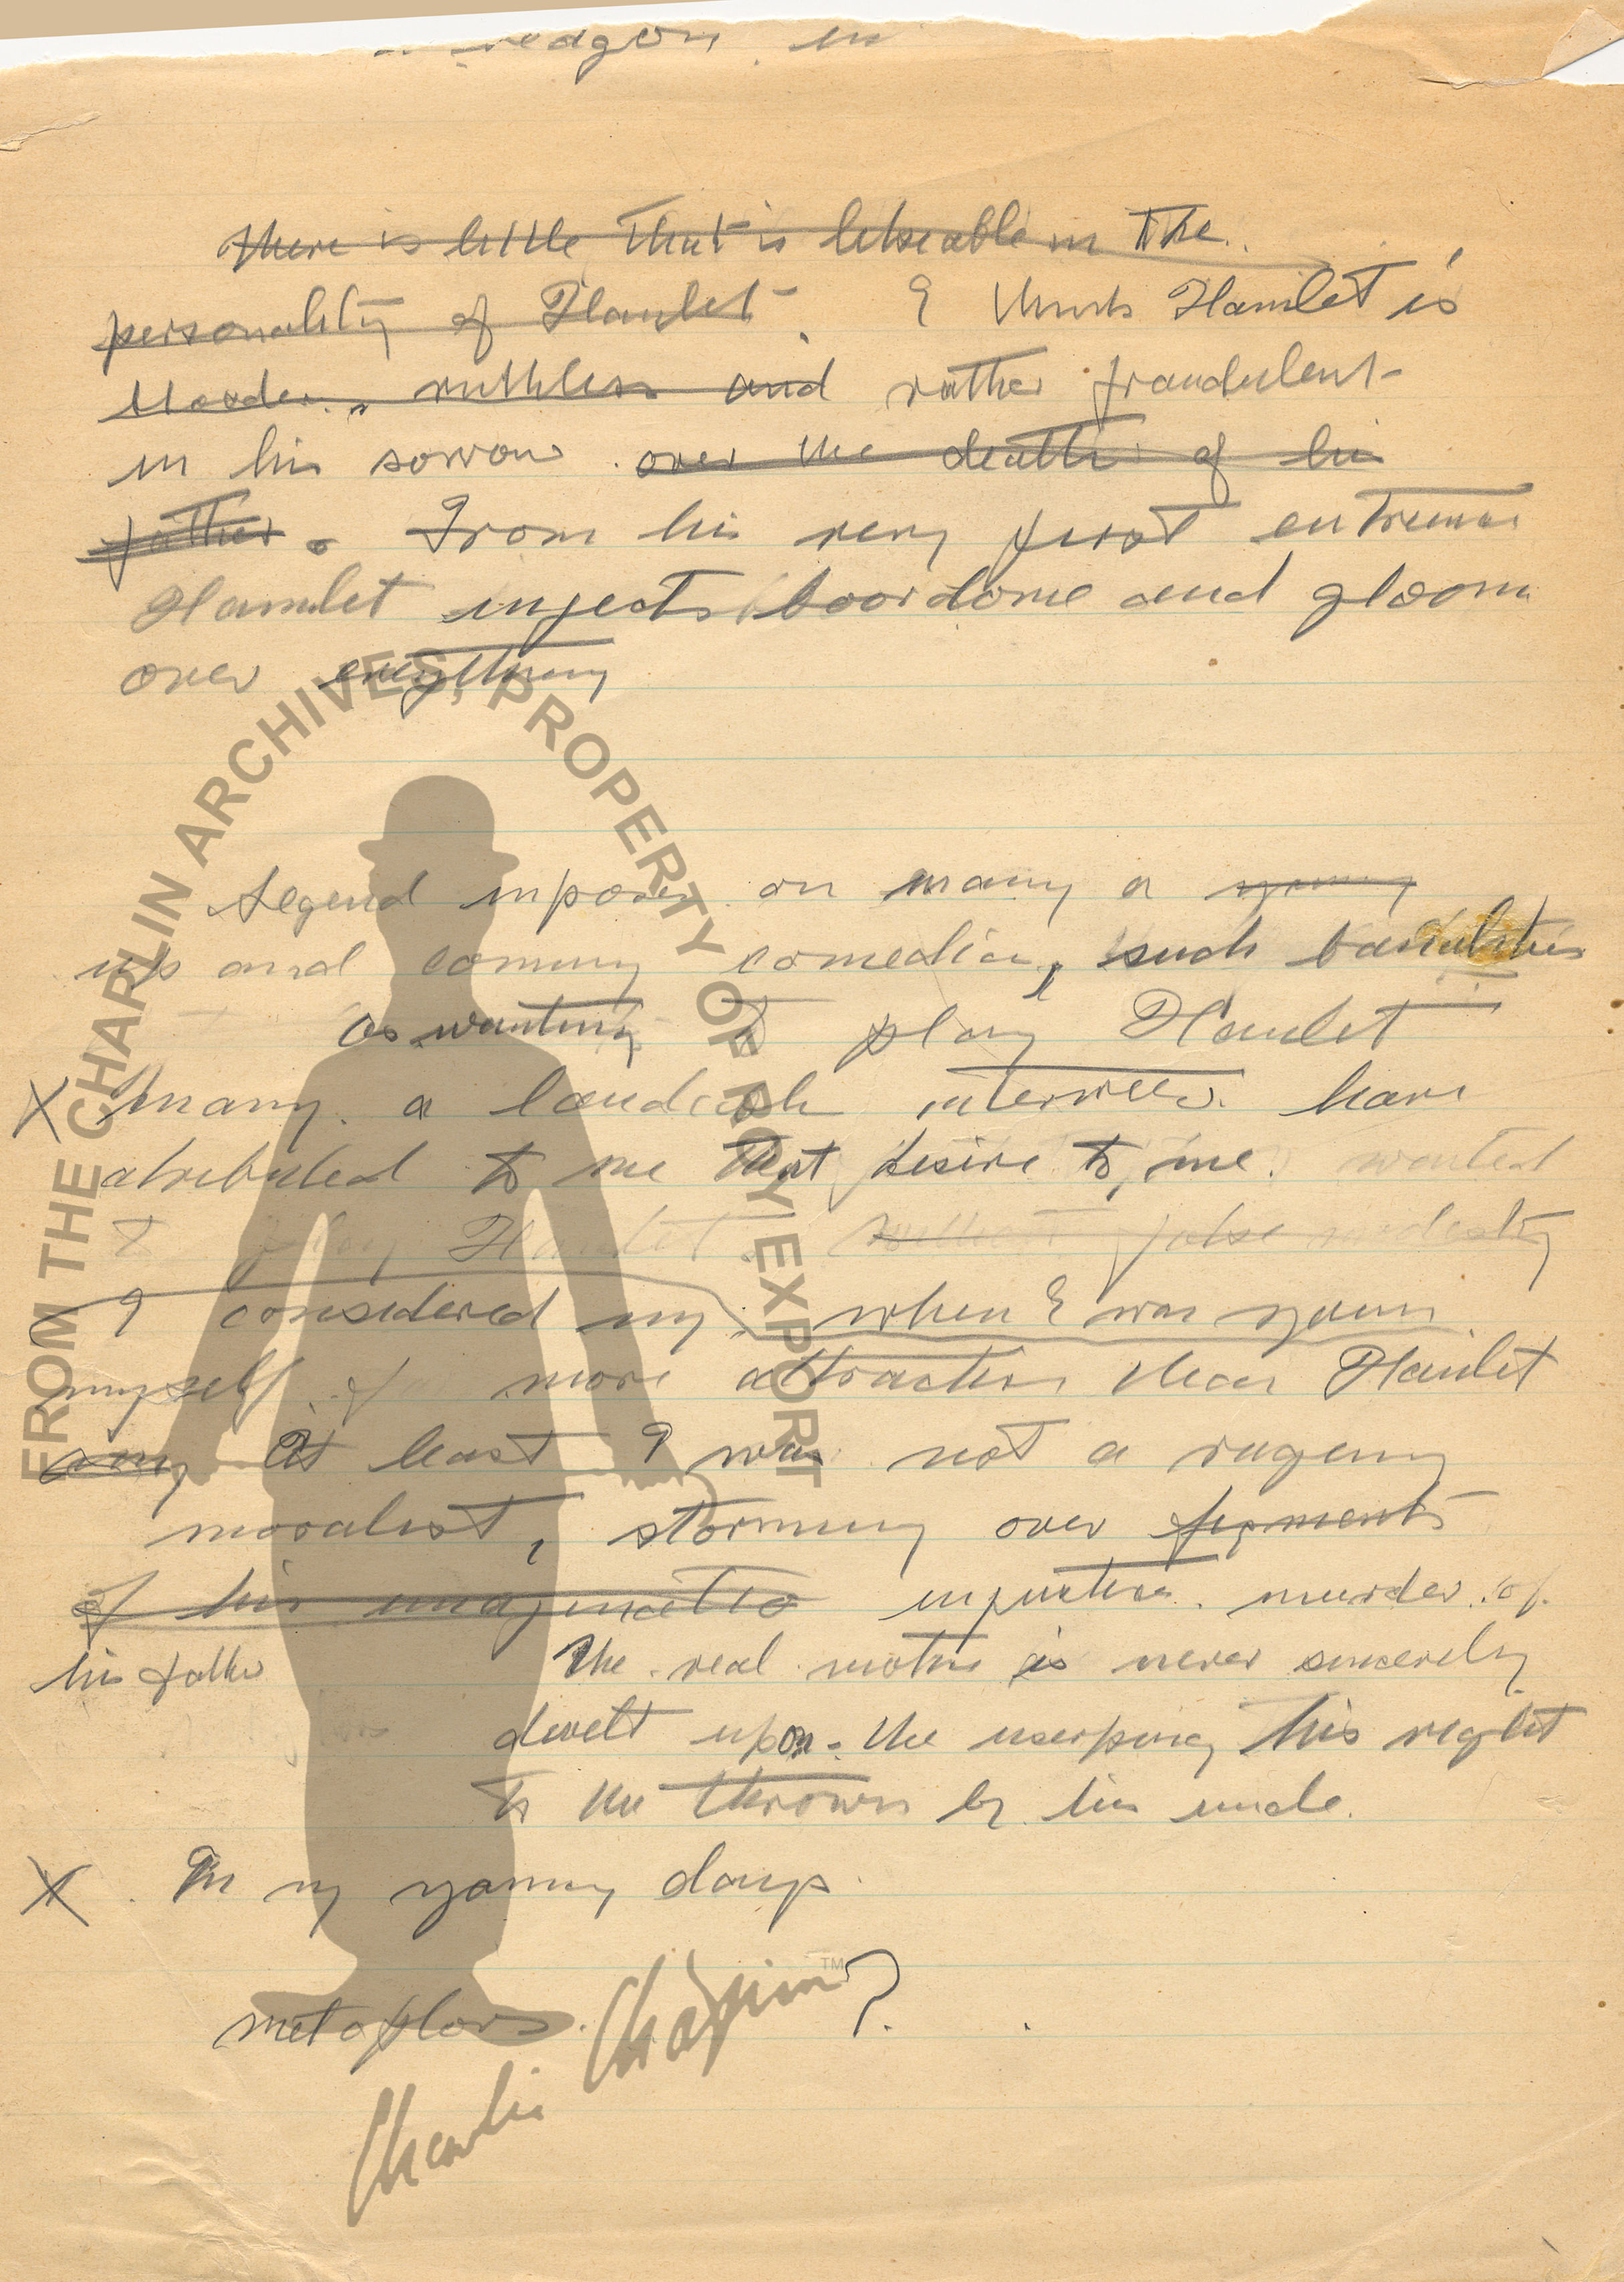 in
There is little that is likeable in the
personality of Hamlet. I think Hamlet is
ruthless and rather fraudulent
in his sorrow over the death of his
father. From his very first entrence
Hamlet injects boordome and gloom
over everything
Legend imposes on many a young
up and coming comedian, such banalities
as wanting to play Hamlet
X Many a interview have
atributed to me that desire to me. wanted
to play Hamlet. Without false modesty
I considered my when I was young
myself more attractive than Hamlet
at least I was not a
moralist, storming over figments
of his imaginatio injustice. murder of
his father The real motive is never sincerely
dwelt upon - the userping his right
to the thrown by his uncle.
X In my young days.
metaphors. ?
FROM THE CHAPLIN ARCHIVES, PROPERTY OF ROY EXPORT
Charlie Chaplin TM